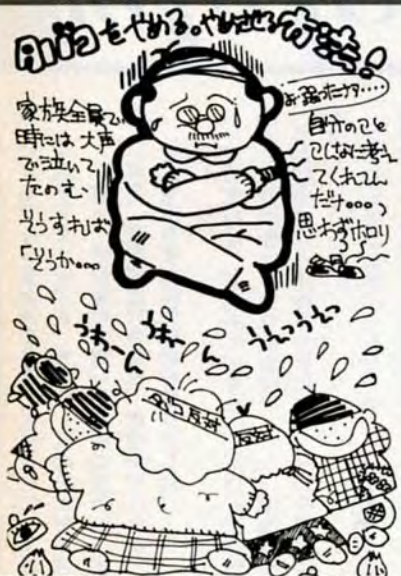 タバコをやめる。やめさせる方法!
家族全員で、
時には大声
で泣いて
たのむ、
そうすれば
「そうか…
自分のこと
こんなに考え
てくれてん
だナ…っ
思わずホロリ
うわーん
うわーん
うえっうえっ
タバコ反対
反対